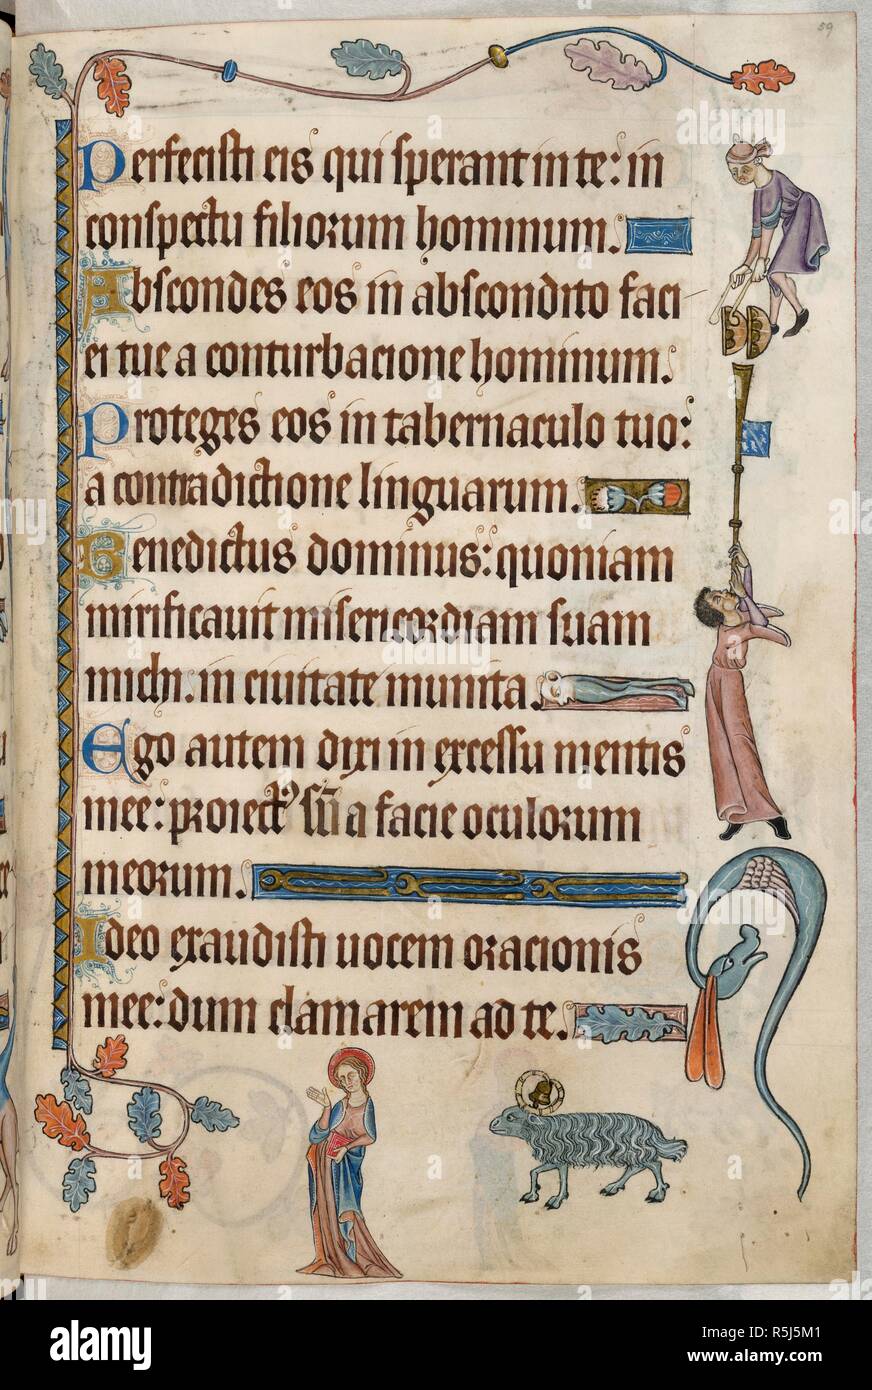 59
Perfecisti eis qui sperant in te: in
conspectu filiorum hominum.
Abscondes eos in abscondito faci
ei tue a conturbacione hominum.
Proteges eos in tabernaculo tuo:
a contradictione linguarum.
Benedictus dominus: quoniam
mirificauit misericordiam suam
michi. in ciuitate munita.
Ego autem dixi in excessu mentis
mee: proiectꝰ sū a facie oculorum
meorum.
Ideo exaudisti uocem oracionis
mee: dum clamarem ad te.
alamy
alamy
Image ID: R5J5M1
www.alamy.com